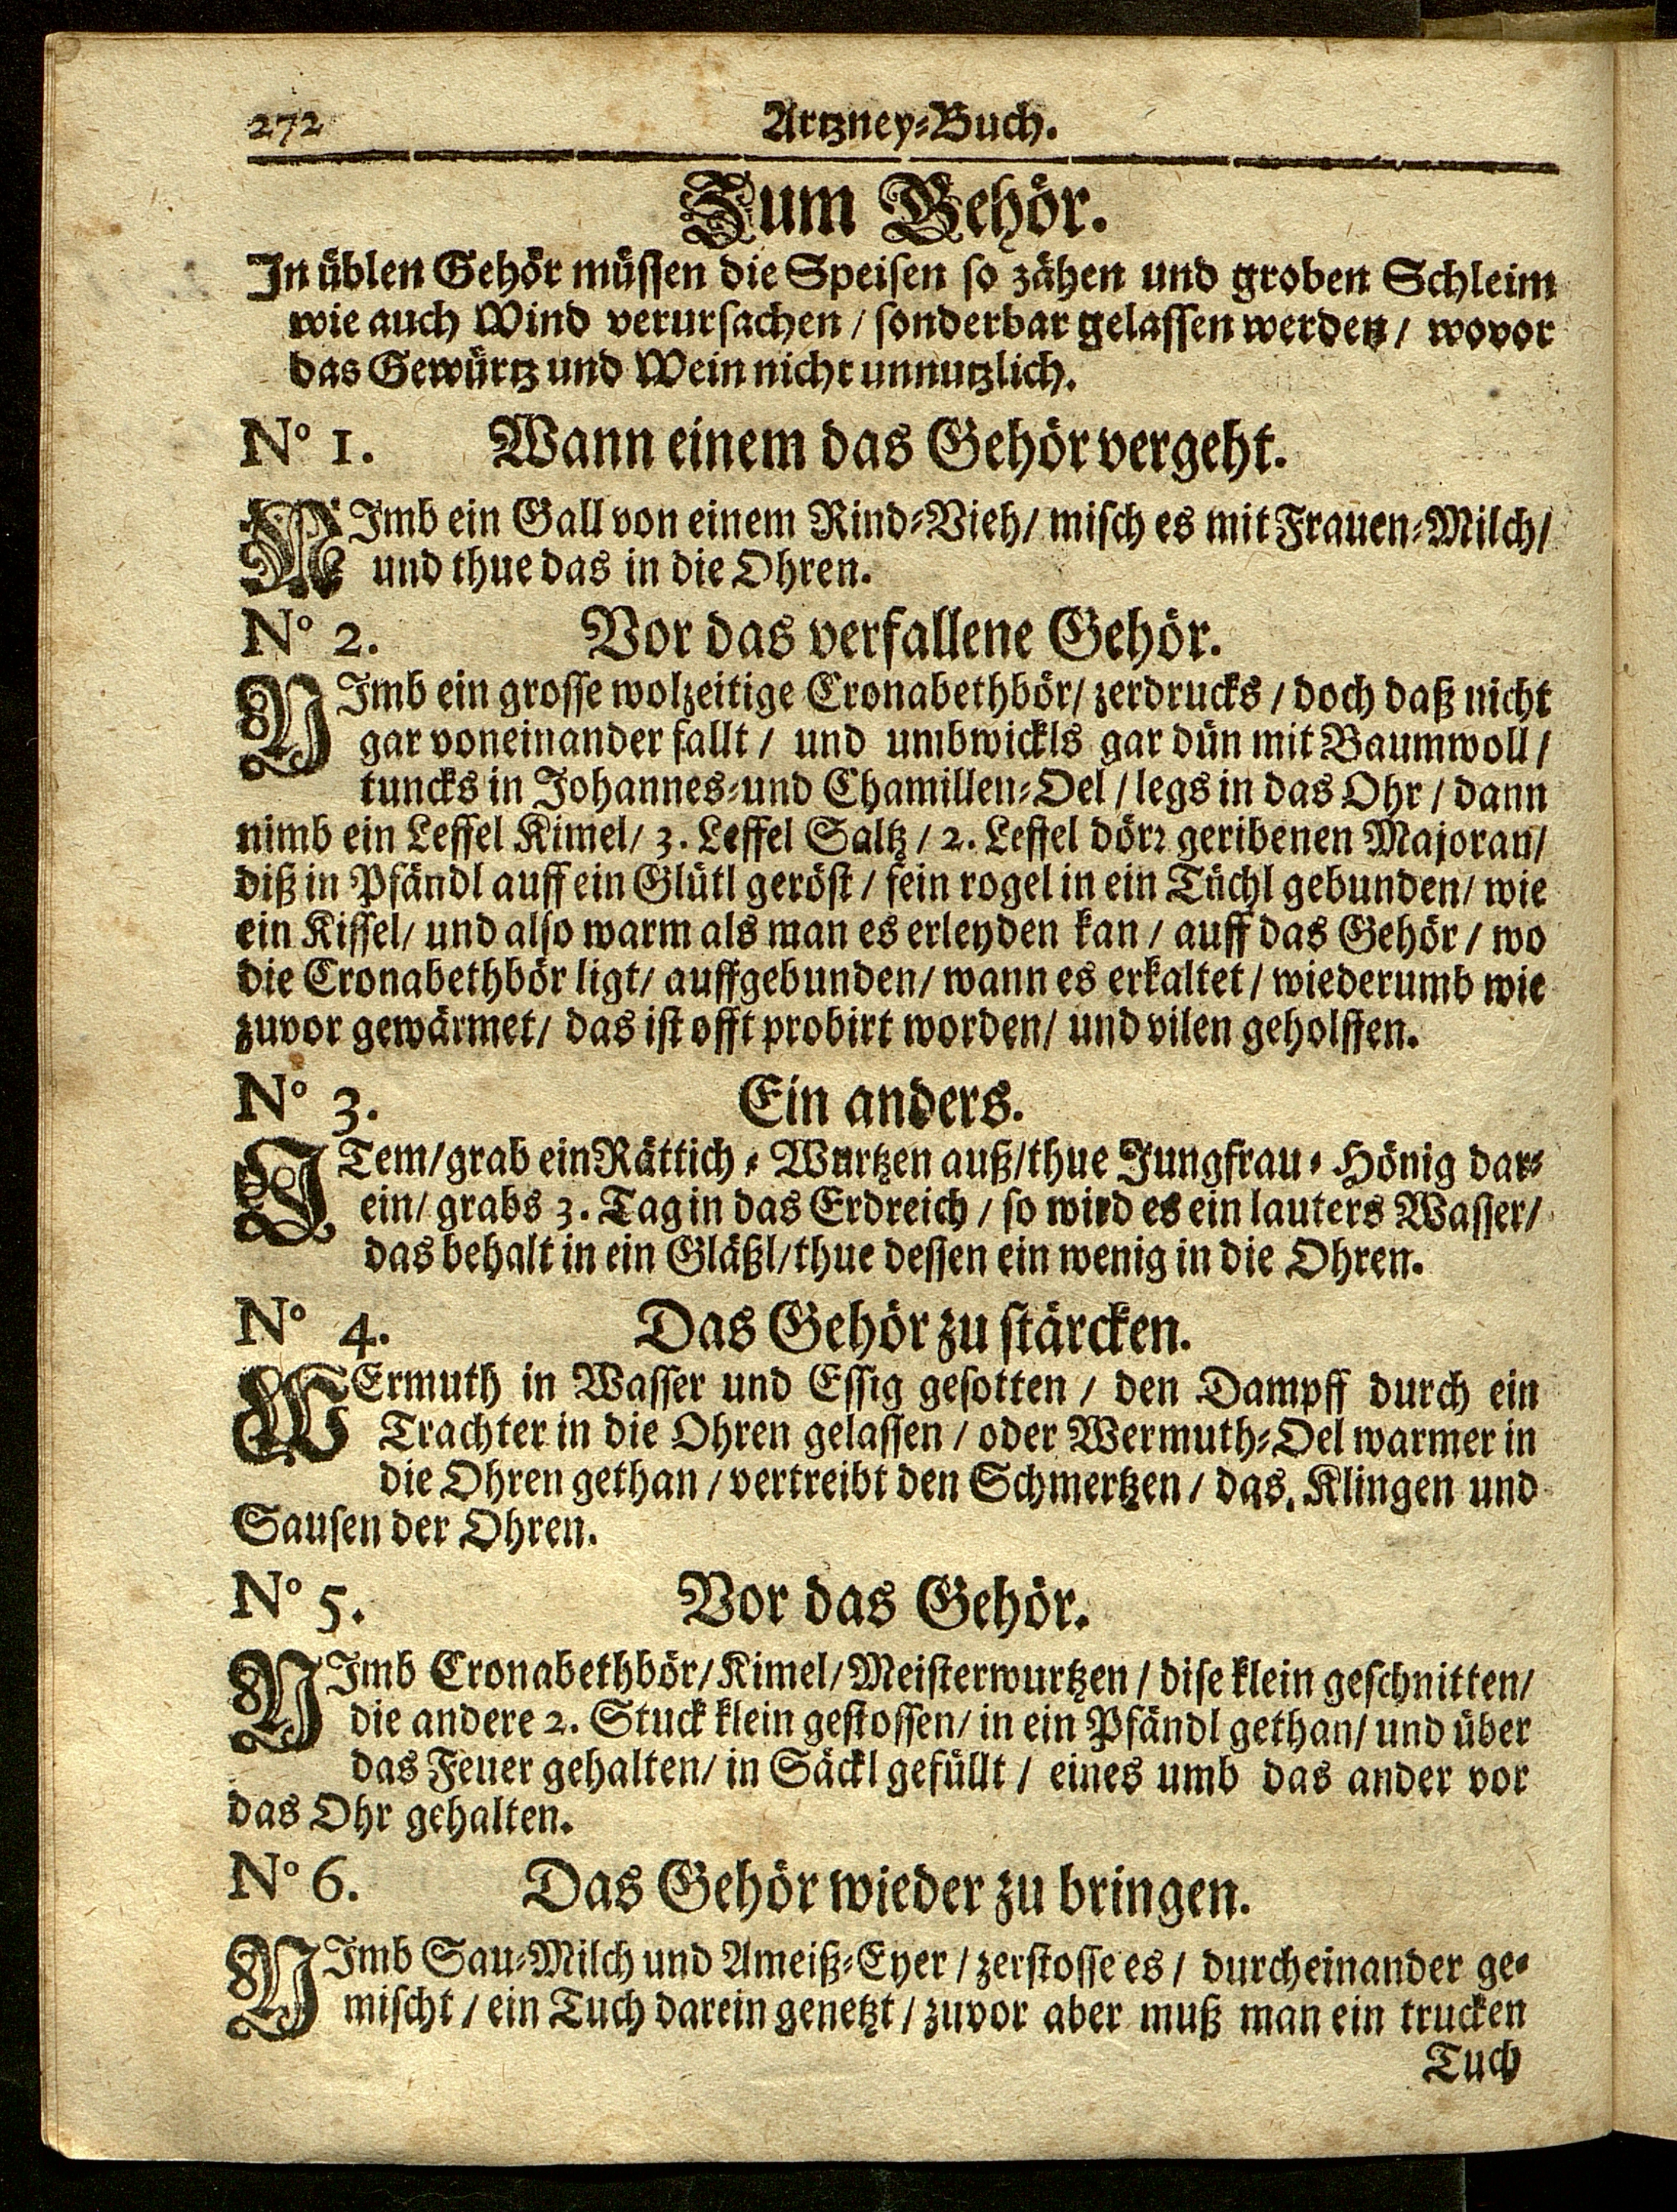 272 Artzney-Buch.
Zum Gehör.
In üblen Gehör müssen die Speisen so zähen und groben Schleim
wie auch Wind verursachen / sonderbar gelassen werden / wovor
das Gewürtz und Wein nicht unnutzlich.
No 1. Wann einem das Gehör vergeht.
NImb ein Gall von einem Rind-Vieh / misch es mit Frauen-Milch /
und thue das in die Ohren.
No 2. Vor das verfallene Gehör.
NImb ein grosse wolzeitige Cronabethbör / zerdrucks / doch daß nicht
gar voneinander fallt / und umbwickls gar dün mit Baumwoll /
tuncks in Johannes- und Chamillen-Oel / legs in das Ohr / dann
nimb ein Leffel Kimel / 3. Leffel Saltz / 2. Leffel dörr geribenen Majoran /
diß in Pfändl auff ein Glütl geröst / fein rogel in ein Tüchl gebunden / wie
ein Kissel / und also warm als man es erleyden kan / auff das Gehör / wo
die Cronabethbör ligt / auffgebunden / wann es erkaltet / wiederumb wie
zuvor gewärmet / das ist offt probirt worden / und vilen geholffen.
No 3. Ein anders.
ITem / grab ein Rättich-Wurtzen auß / thue Jungfrau-Hönig dar-
ein / grabs 3. Tag in das Erdreich / so wird es ein lauters Wasser /
das behalt in ein Gläßl / thue dessen ein wenig in die Ohren.
No 4. Das Gehör zu stärcken.
WErmuth in Wasser und Essig gesotten / den Dampff durch ein
Trachter in die Ohren gelassen / oder Wermuth-Oel warmer in
die Ohren gethan / vertreibt den Schmertzen / das. Klingen und
Sausen der Ohren.
No 5. Vor das Gehör.
NImb Cronabethbör / Kimel / Meisterwurtzen / dise klein geschnitten /
die andere 2. Stuck klein gestossen / in ein Pfändl gethan / und über
das Feuer gehalten / in Säckl gefüllt / eines umb das ander vor
das Ohr gehalten.
No 6. Das Gehör wieder zu bringen.
NImb Sau-Milch und Ameiß-Eyer / zerstosse es / durcheinander ge-
mischt / ein Tuch darein genetzt / zuvor aber muß man ein trucken
Tuch